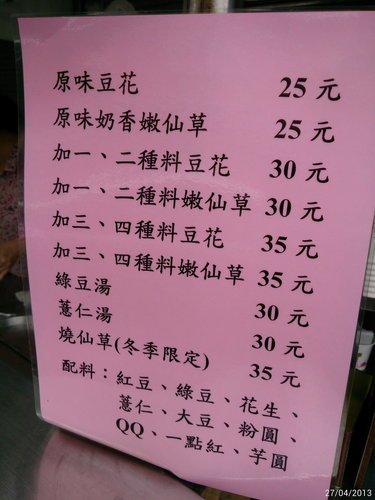 原味豆花 25 元
原味奶香嫩仙草 25 元
加一、二種料豆花 30 元
加一、二種料嫩仙草 30 元
加三、四種料豆花 35 元
加三、四種料嫩仙草 35 元
綠豆湯 30 元
薏仁湯 30 元
燒仙草(冬季限定) 35 元
配料：紅豆、綠豆、花生、
薏仁、大豆、粉圓、
QQ、一點紅、芋圓
27/04/2013